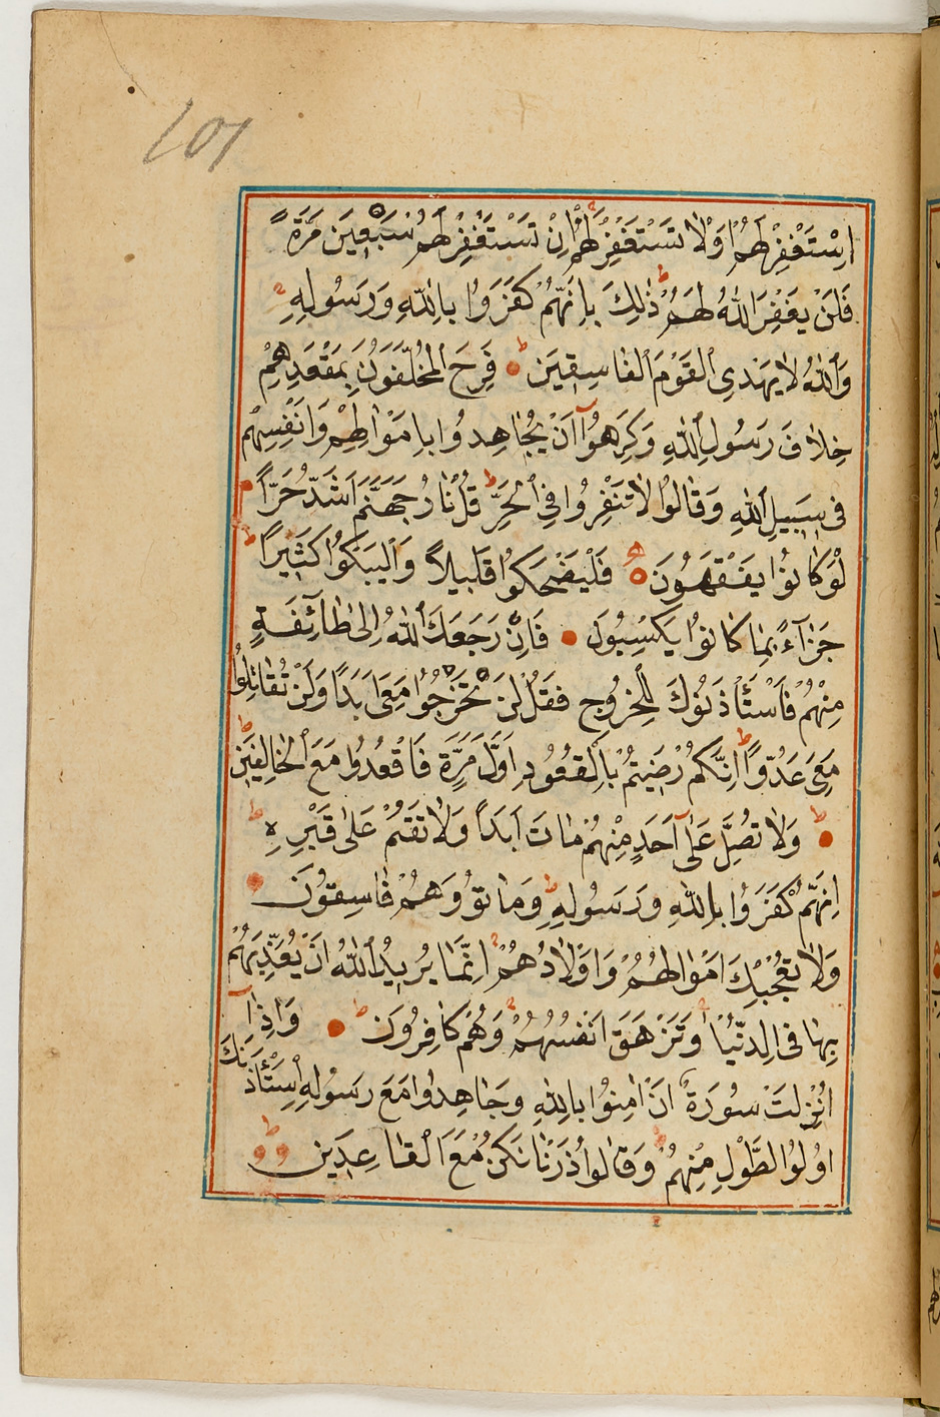 101
اِسْتَغْفِرْ لَهُمْ اَوْ لَا تَسْتَغْفِرْ لَهُمْ اِنْ تَسْتَغْفِرْ لَهُمْ سَبْعِينَ مَرَّةً
فَلَنْ يَغْفِرَ اللّٰهُ لَهُمْ ذٰلِكَ بِاَنَّهُمْ كَفَرُوا بِاللّٰهِ وَرَسُولِهِ
وَاللّٰهُ لَا يَهْدِى الْقَوْمَ الْفَاسِقِينَ فَرِحَ الْمُخَلَّفُونَ بِمَقْعَدِهِمْ
خِلَافَ رَسُولِ اللّٰهِ وَكَرِهُوآ اَنْ يُجَاهِدُوا بِاَمْوَالِهِمْ وَاَنْفُسِهِمْ
فِى سَبِيلِ اللّٰهِ وَقَالُوا لَا تَنْفِرُوا فِى الْحَرِّ قُلْ نَارُ جَهَنَّمَ اَشَدُّ حَرًّا
لَوْ كَانُوا يَفْقَهُونَ فَلْيَضْحَكُوا قَلِيلاً وَلْيَبْكُوا كَثِيرًا
جَزَآءً بِمَا كَانُوا يَكْسِبُونَ فَاِنْ رَجَعَكَ اللّٰهُ اِلٰى طَآئِفَةٍ
مِنْهُمْ فَاسْتَأْذَنُوكَ لِلْخُرُوجِ فَقُلْ لَنْ تَخْرُجُوا مَعِىَ اَبَدًا وَلَنْ تُقَاتِلُوا
مَعِىَ عَدُوًّا اِنَّكُمْ رَضِيتُمْ بِالْقُعُودِ اَوَّلَ مَرَّةٍ فَاقْعُدُوا مَعَ الْخَالِفِينَ
وَلَا تُصَلِّ عَلٰٓى اَحَدٍ مِنْهُمْ مَاتَ اَبَدًا وَلَا تَقُمْ عَلٰى قَبْرِهِ
اِنَّهُمْ كَفَرُوا بِاللّٰهِ وَرَسُولِهِ وَمَاتُوا وَهُمْ فَاسِقُونَ
وَلَا تُعْجِبْكَ اَمْوَالُهُمْ وَاَوْلَادُهُمْ اِنَّمَا يُرِيدُ اللّٰهُ اَنْ يُعَذِّبَهُمْ
بِهَا فِى الدُّنْيَا وَتَزْهَقَ اَنْفُسُهُمْ وَهُمْ كَافِرُونَ وَاِذَآ
اُنْزِلَتْ سُورَةٌ اَنْ اٰمِنُوا بِاللّٰهِ وَجَاهِدُوا مَعَ رَسُولِهِ اسْتَأْذَنَكَ
اُولُوا الطَّوْلِ مِنْهُمْ وَقَالُوا ذَرْنَا نَكُنْ مَعَ الْقَاعِدِينَ